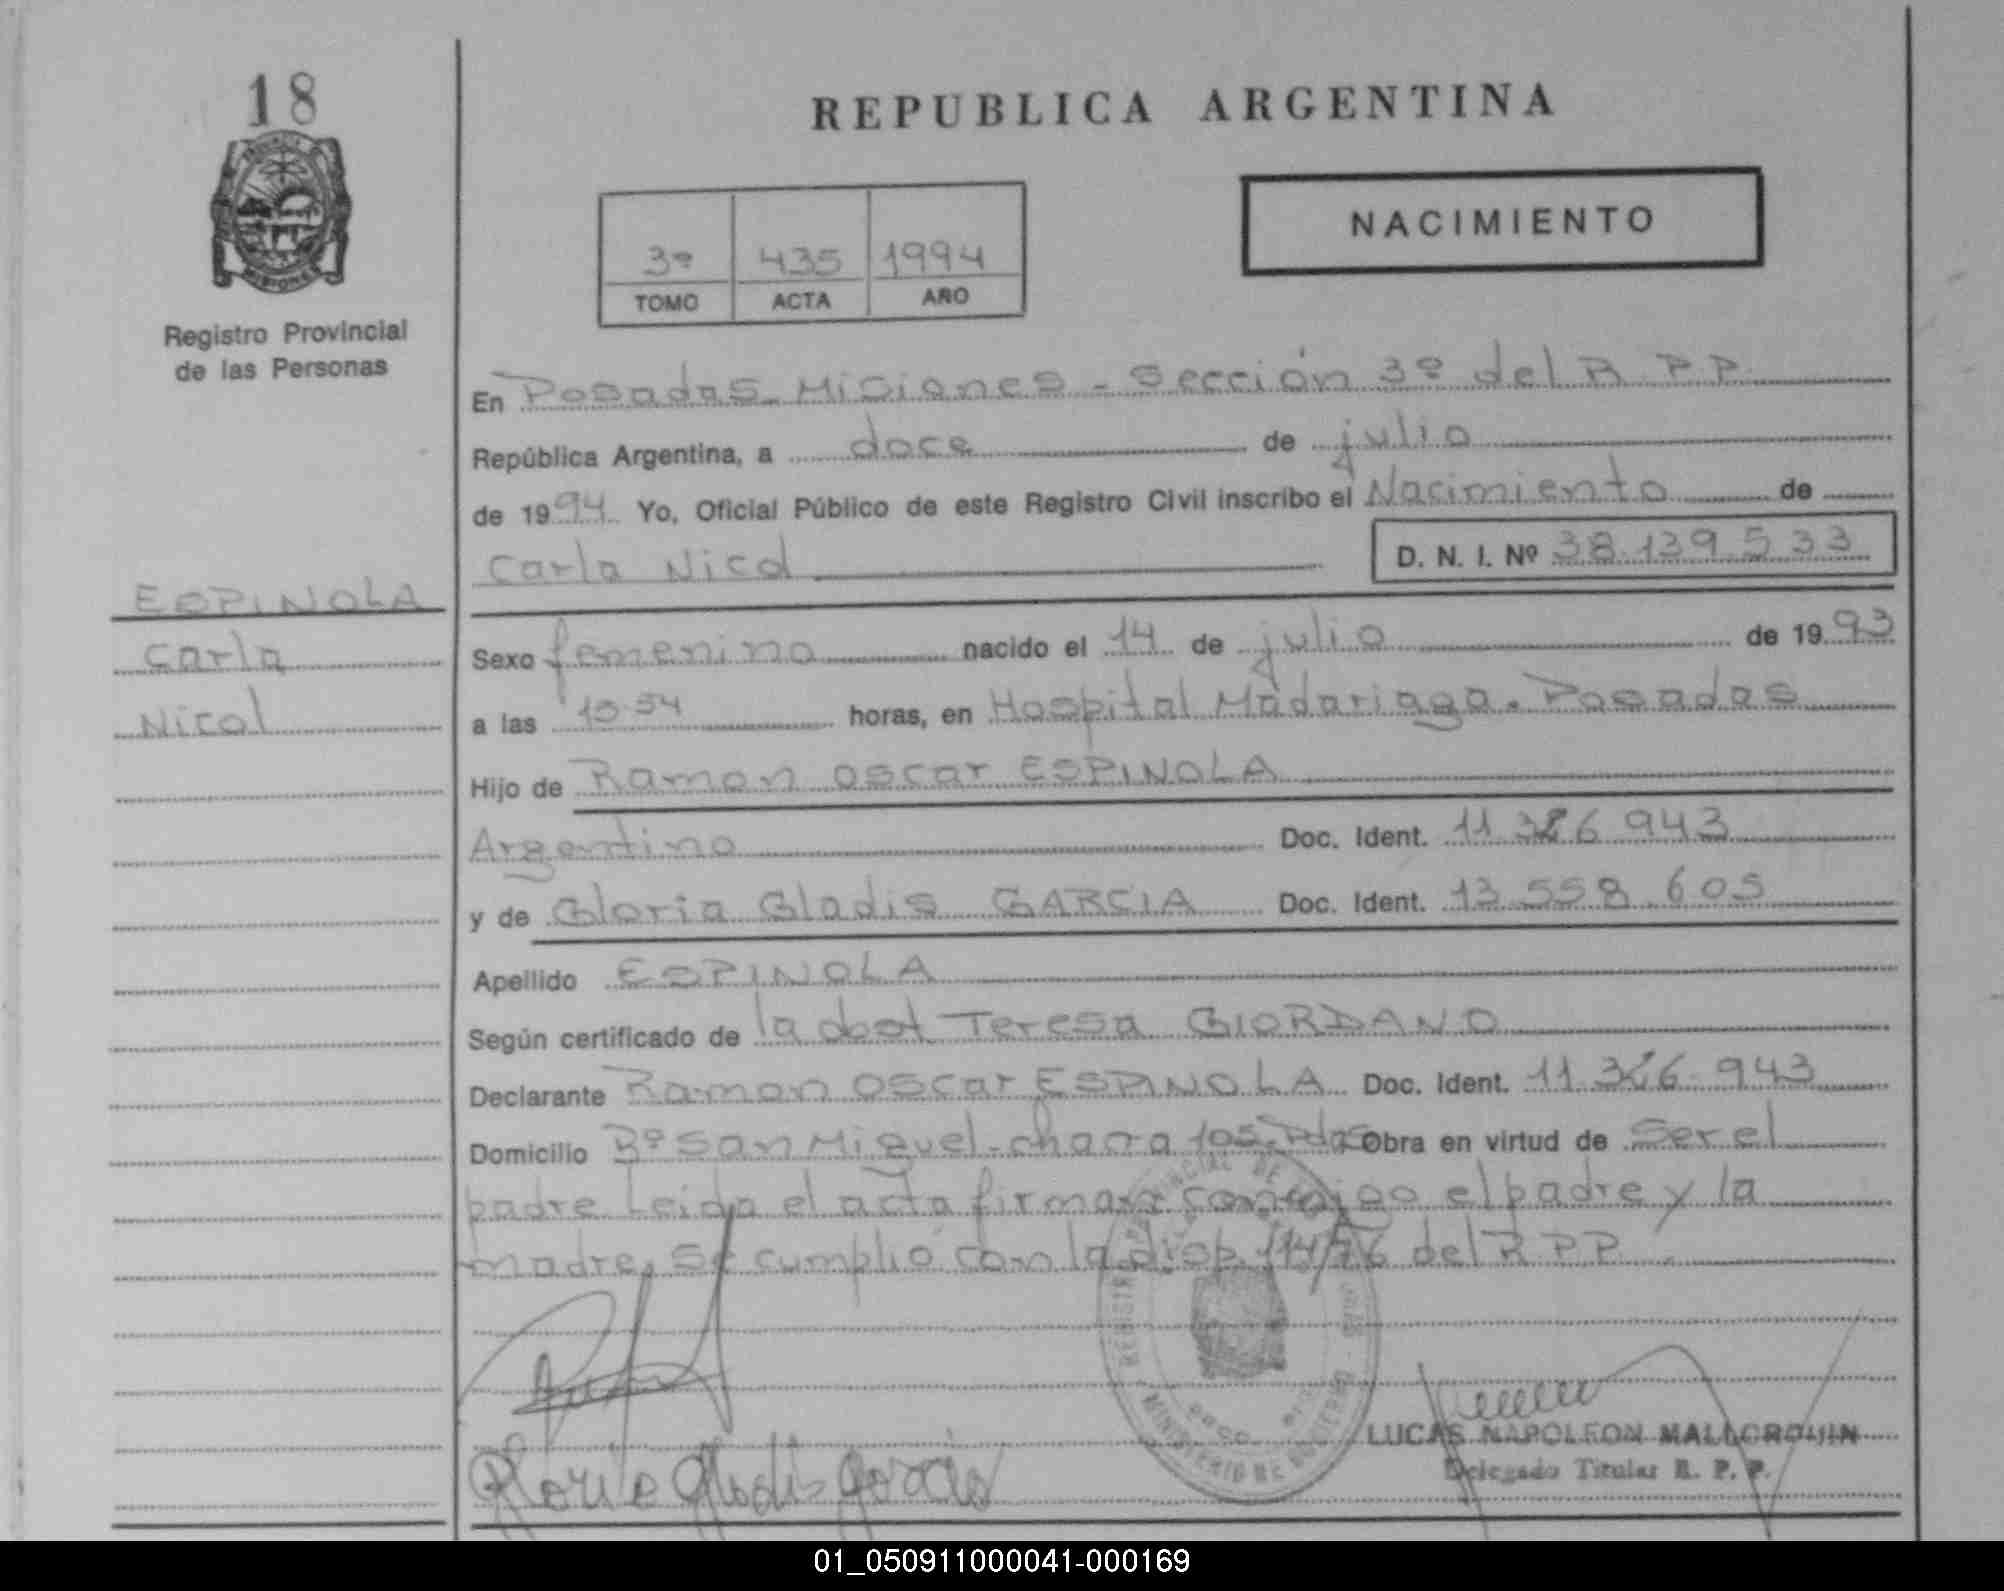 18
REPUBLICA ARGENTINA
NACIMIENTO
3º 435 1994
TOMO ACTA AÑO
MISIONES
Registro Provincial
de las Personas
En Posadas Misiones - Sección 3º del R.P.P.
República Argentina, a doce de julio
de 1994 Yo, Oficial Público de este Registro Civil inscribo el Nacimiento de
Carla Nicol D. N. I. Nº 38.139.533
ESPINOLA
Carla
Nicol
Sexo femenino nacido el 14 de julio de 1993
a las horas, en Hospital Madariaga. Posadas
Hijo de Ramon Oscar ESPINOLA
Argentino Doc. Ident. 11 943
y de Gloria Gladis GARCIA Doc. Ident. 13.558.605
Apellido ESPINOLA
Según certificado de la obst Teresa GIORDANO
Declarante Ramon Oscar ESPINOLA Doc. Ident. 11 943
Domicilio Bº San Miguel - chacra 105. Pdas Obra en virtud de Ser el
padre Leida el acta firman conmigo el padre y la
madre. Se cumplió con la disp. 114/76 del R.P.P.
REGISTRO PROVINCIAL DE LAS PERSONAS
MINISTERIO DE GOBIERNO
Gloria Gladis Garcia
LUCAS NAPOLEON MALLORQUIN
Delegado Titular R. P. P.
01_050911000041-000169